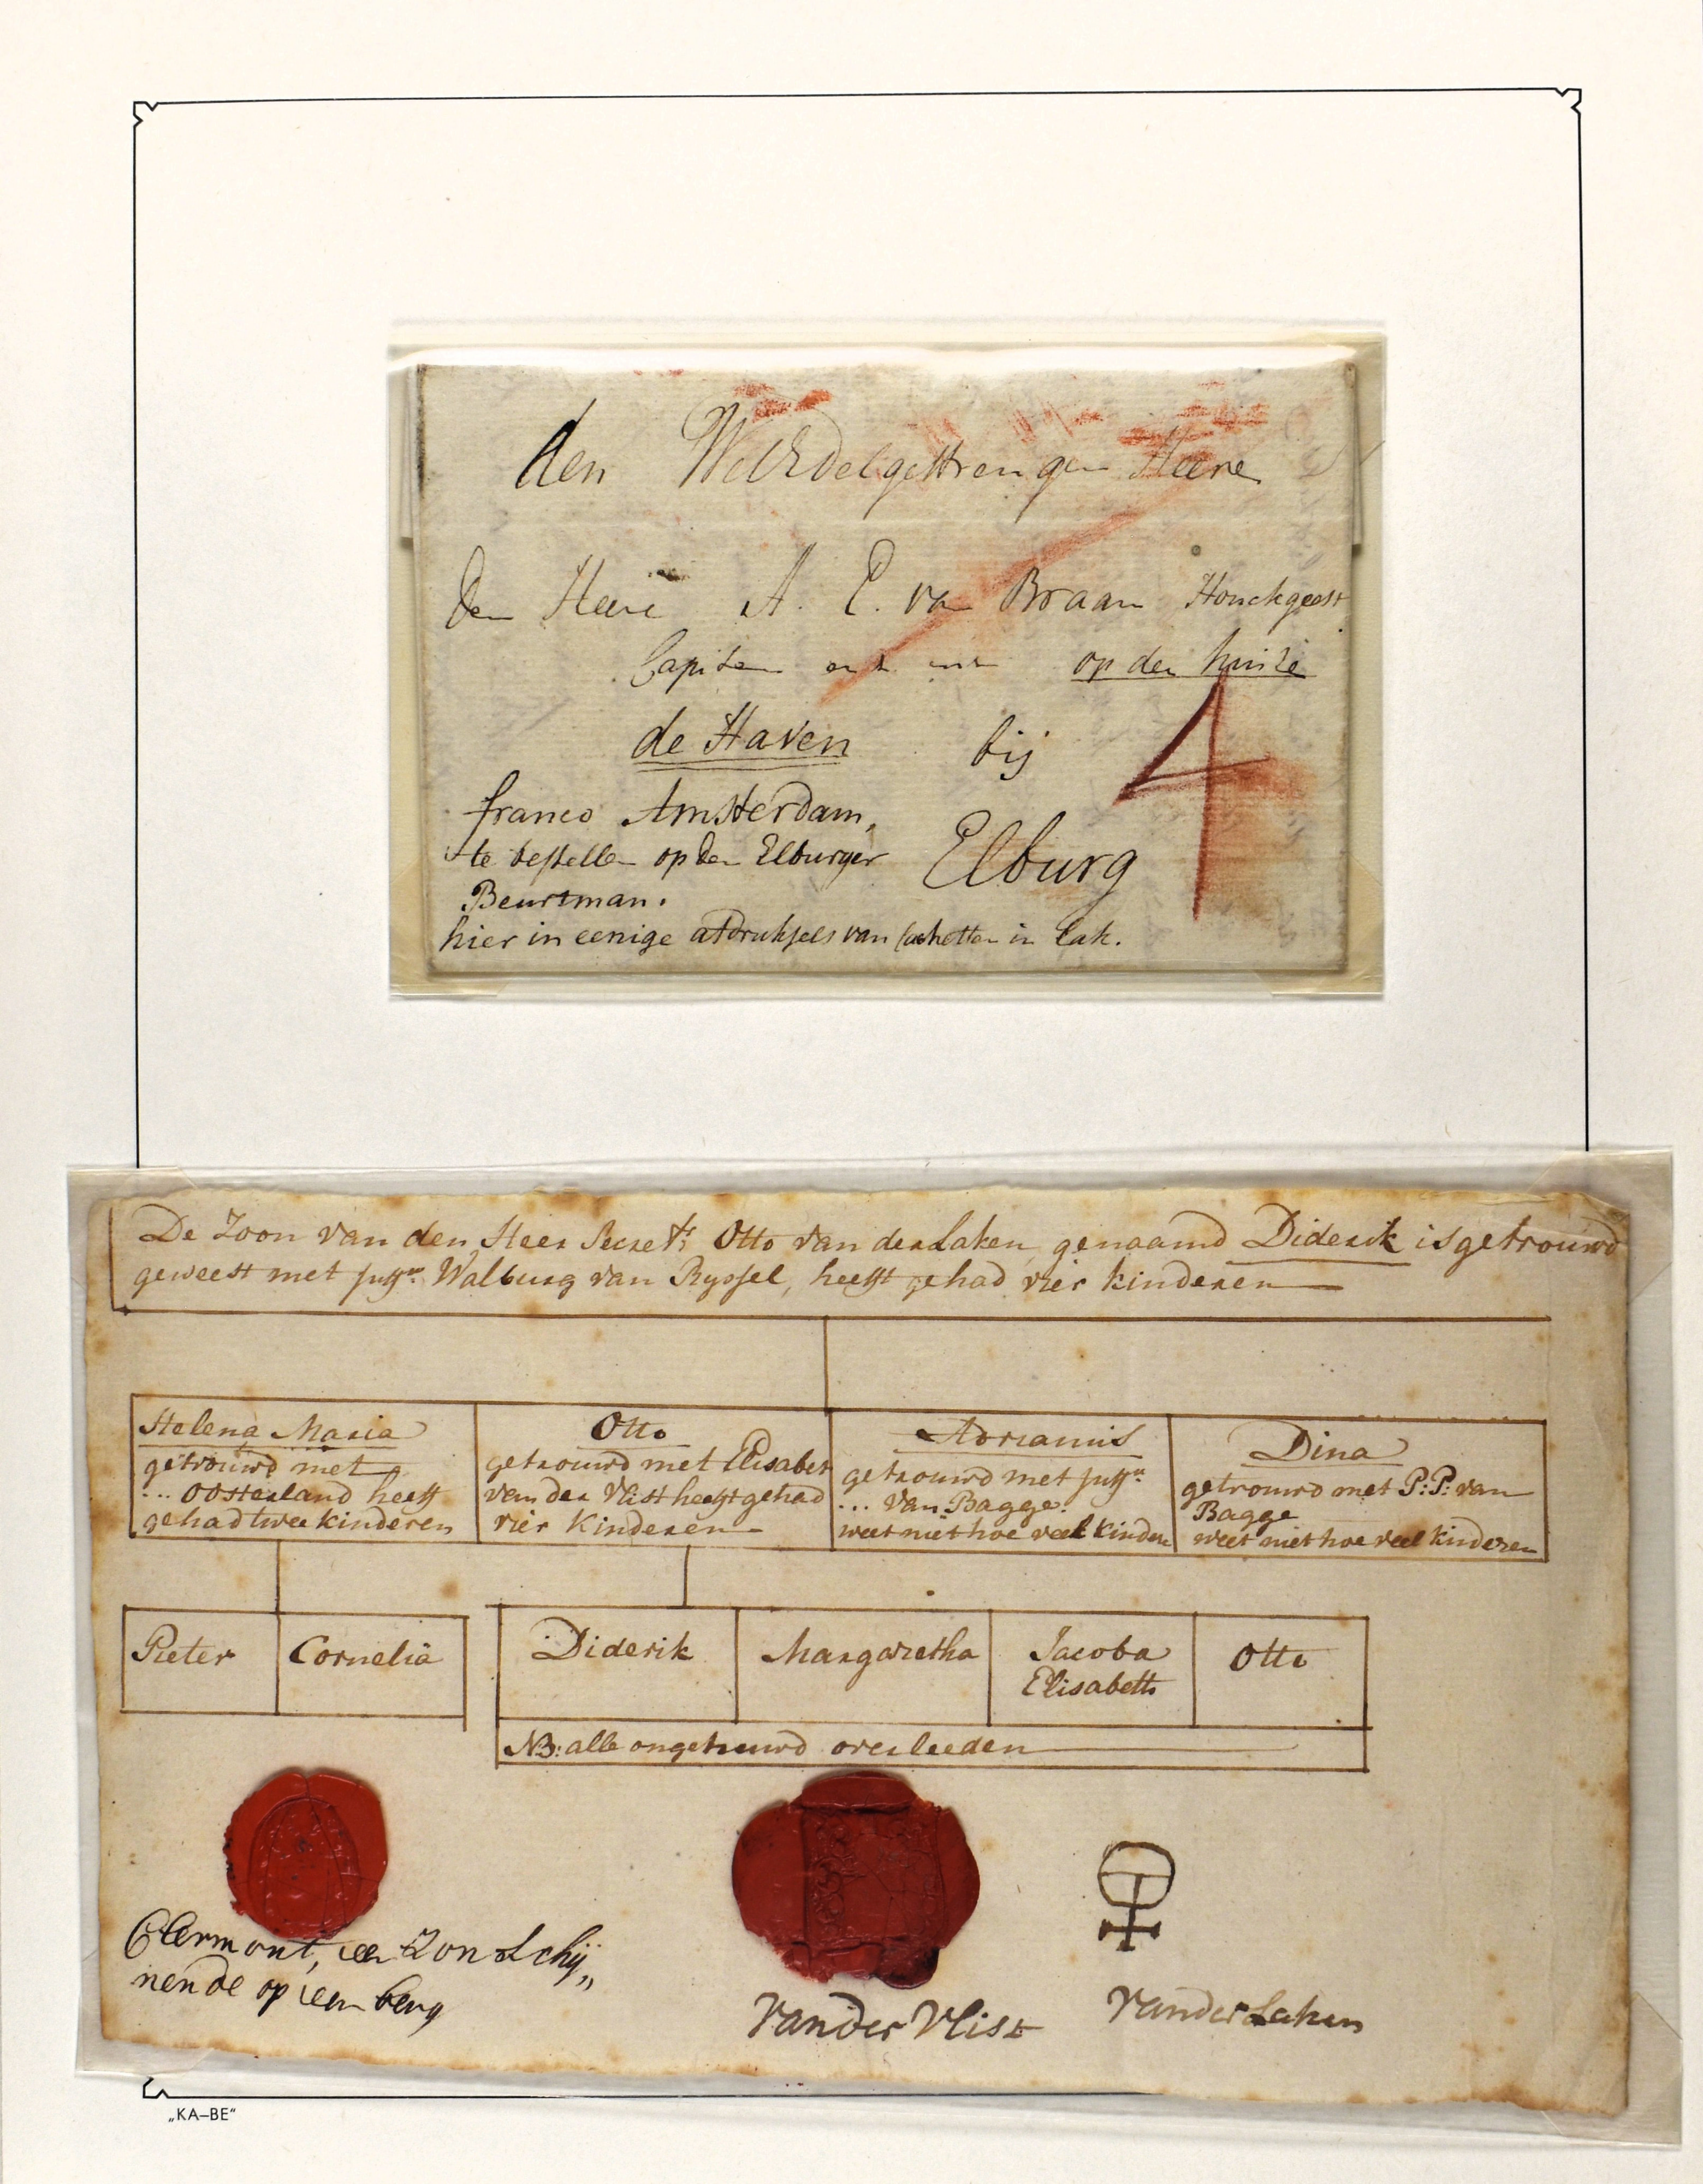 den WelEdelgestrengen Heere
Den Heere A. E. van Braam Houckgeest
Capitein op den huize
de Haven bij
4
franco Amsterdam,
te bestellen op den Elburger
Elburg
Beurtman.
hier in eenige afdruksels van cachetten in Lak.
De Zoon van den Heer Secret:s Otto van der Laken, genaamd Diderik is getrouwd
geweest met juffr. Walburg van Ryssel, heeft gehad vier kinderen
Helena Maria
getrouwd met
... Oosterland heeft
gehad twee kinderen
Otto
getrouwd met Elisabet
van der Vlist heeft gehad
vier Kinderen
Adrianus
getrouwd met juffr.
... Van Bagge.
weet niet hoe veel Kinderen
Dina
getrouwd met P: P: van
Bagge
weet niet hoe veel kinderen
Pieter
Cornelia
Diderik
Margaretha
Jacoba
Elisabeth
Otto
NB: alle ongetrouwd overleeden
Clermont, een Zon schij„
nende op een berg
Van der Vlist
Van der Laken
„KA–BE“